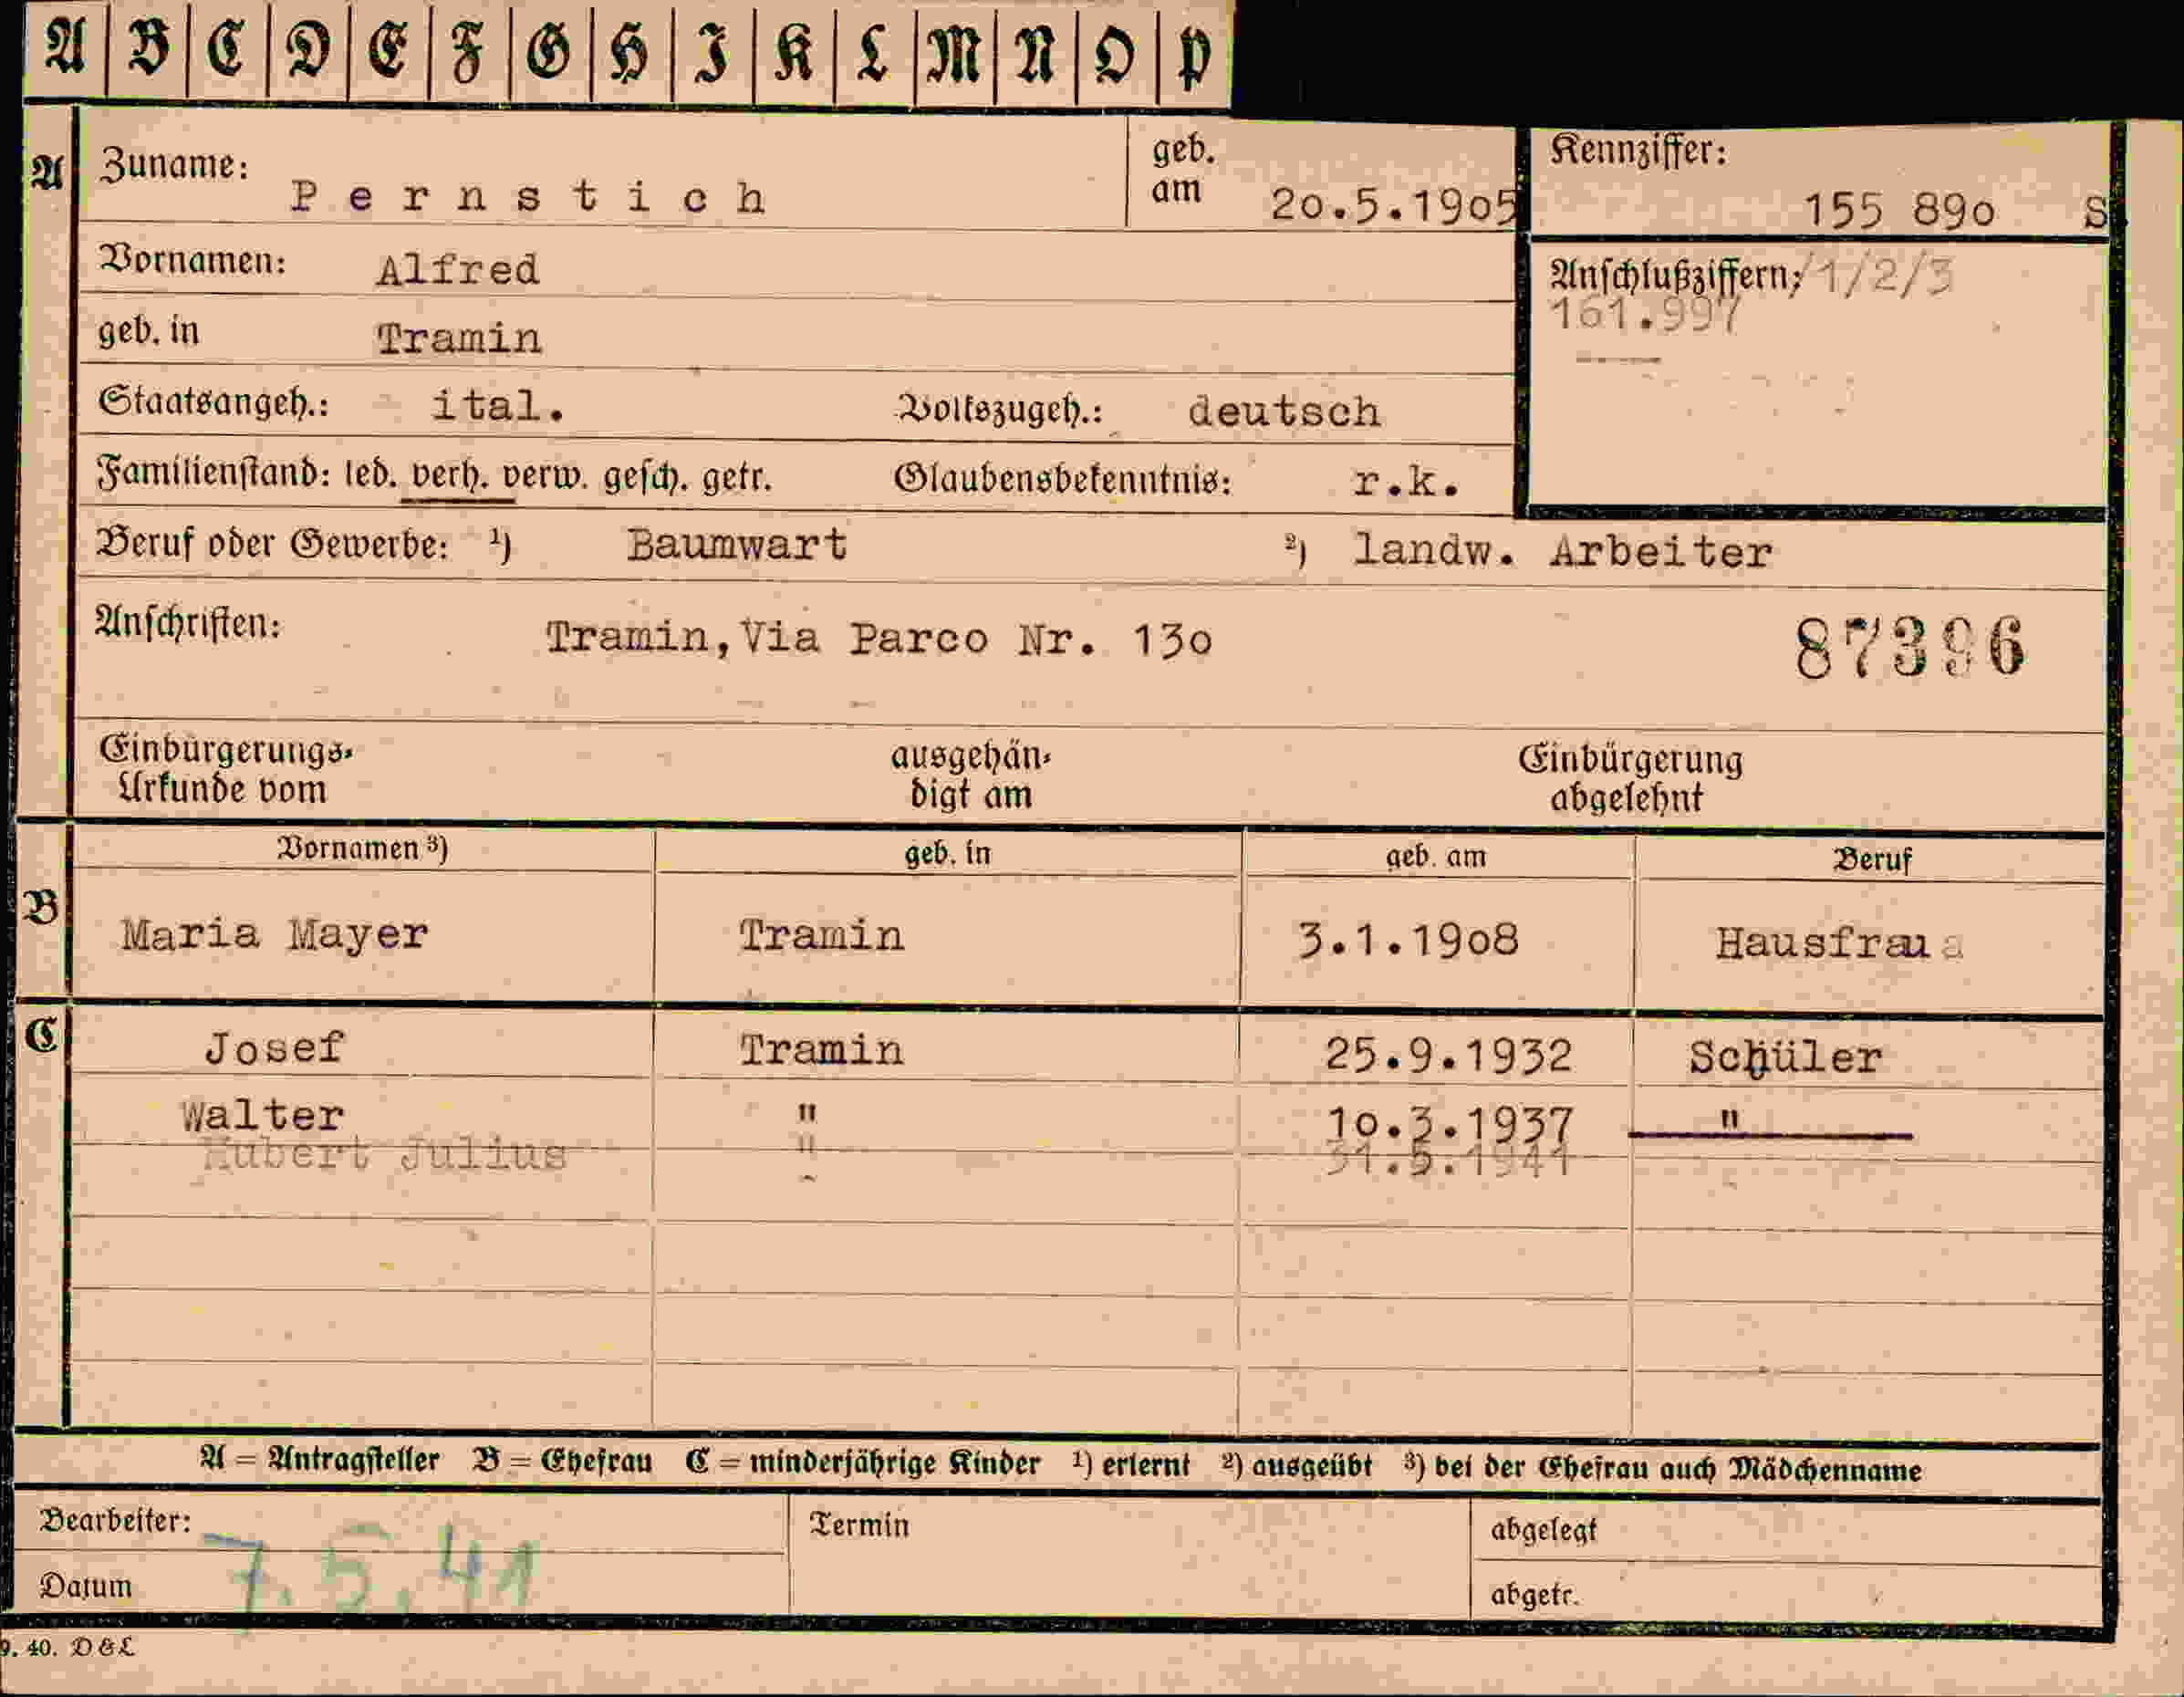 A B C D E F G H I K L M N O P
A Zuname: Pernstich geb. am 20.5.1905 Kennziffer: 155 890 S
Vornamen: Alfred Anschlußziffern: /1/2/3
161.997
geb. in Tramin
Staatsangeh.: ital. Volkszugeh.: deutsch
Familienstand: led. verh. verw. gesch. getr. Glaubensbekenntnis: r.k.
Beruf oder Gewerbe: ¹) Baumwart ²) landw. Arbeiter
Anschriften: Tramin,Via Parco Nr. 130 87396
Einbürgerungs- Urkunde vom ausgehän- digt am Einbürgerung abgelehnt
Vornamen ³) geb. in geb. am Beruf
B Maria Mayer Tramin 3.1.1908 Hausfrau
C Josef Tramin 25.9.1932 Schüler
Walter " 10.3.1937 "
Hubert Julius " 31.5.1941
A = Antragsteller B = Ehefrau C = minderjährige Kinder ¹) erlernt ²) ausgeübt ³) bei der Ehefrau auch Mädchenname
Bearbeiter: Termin abgelegt
Datum 7.5.41 abgetr.
9. 40. D&L